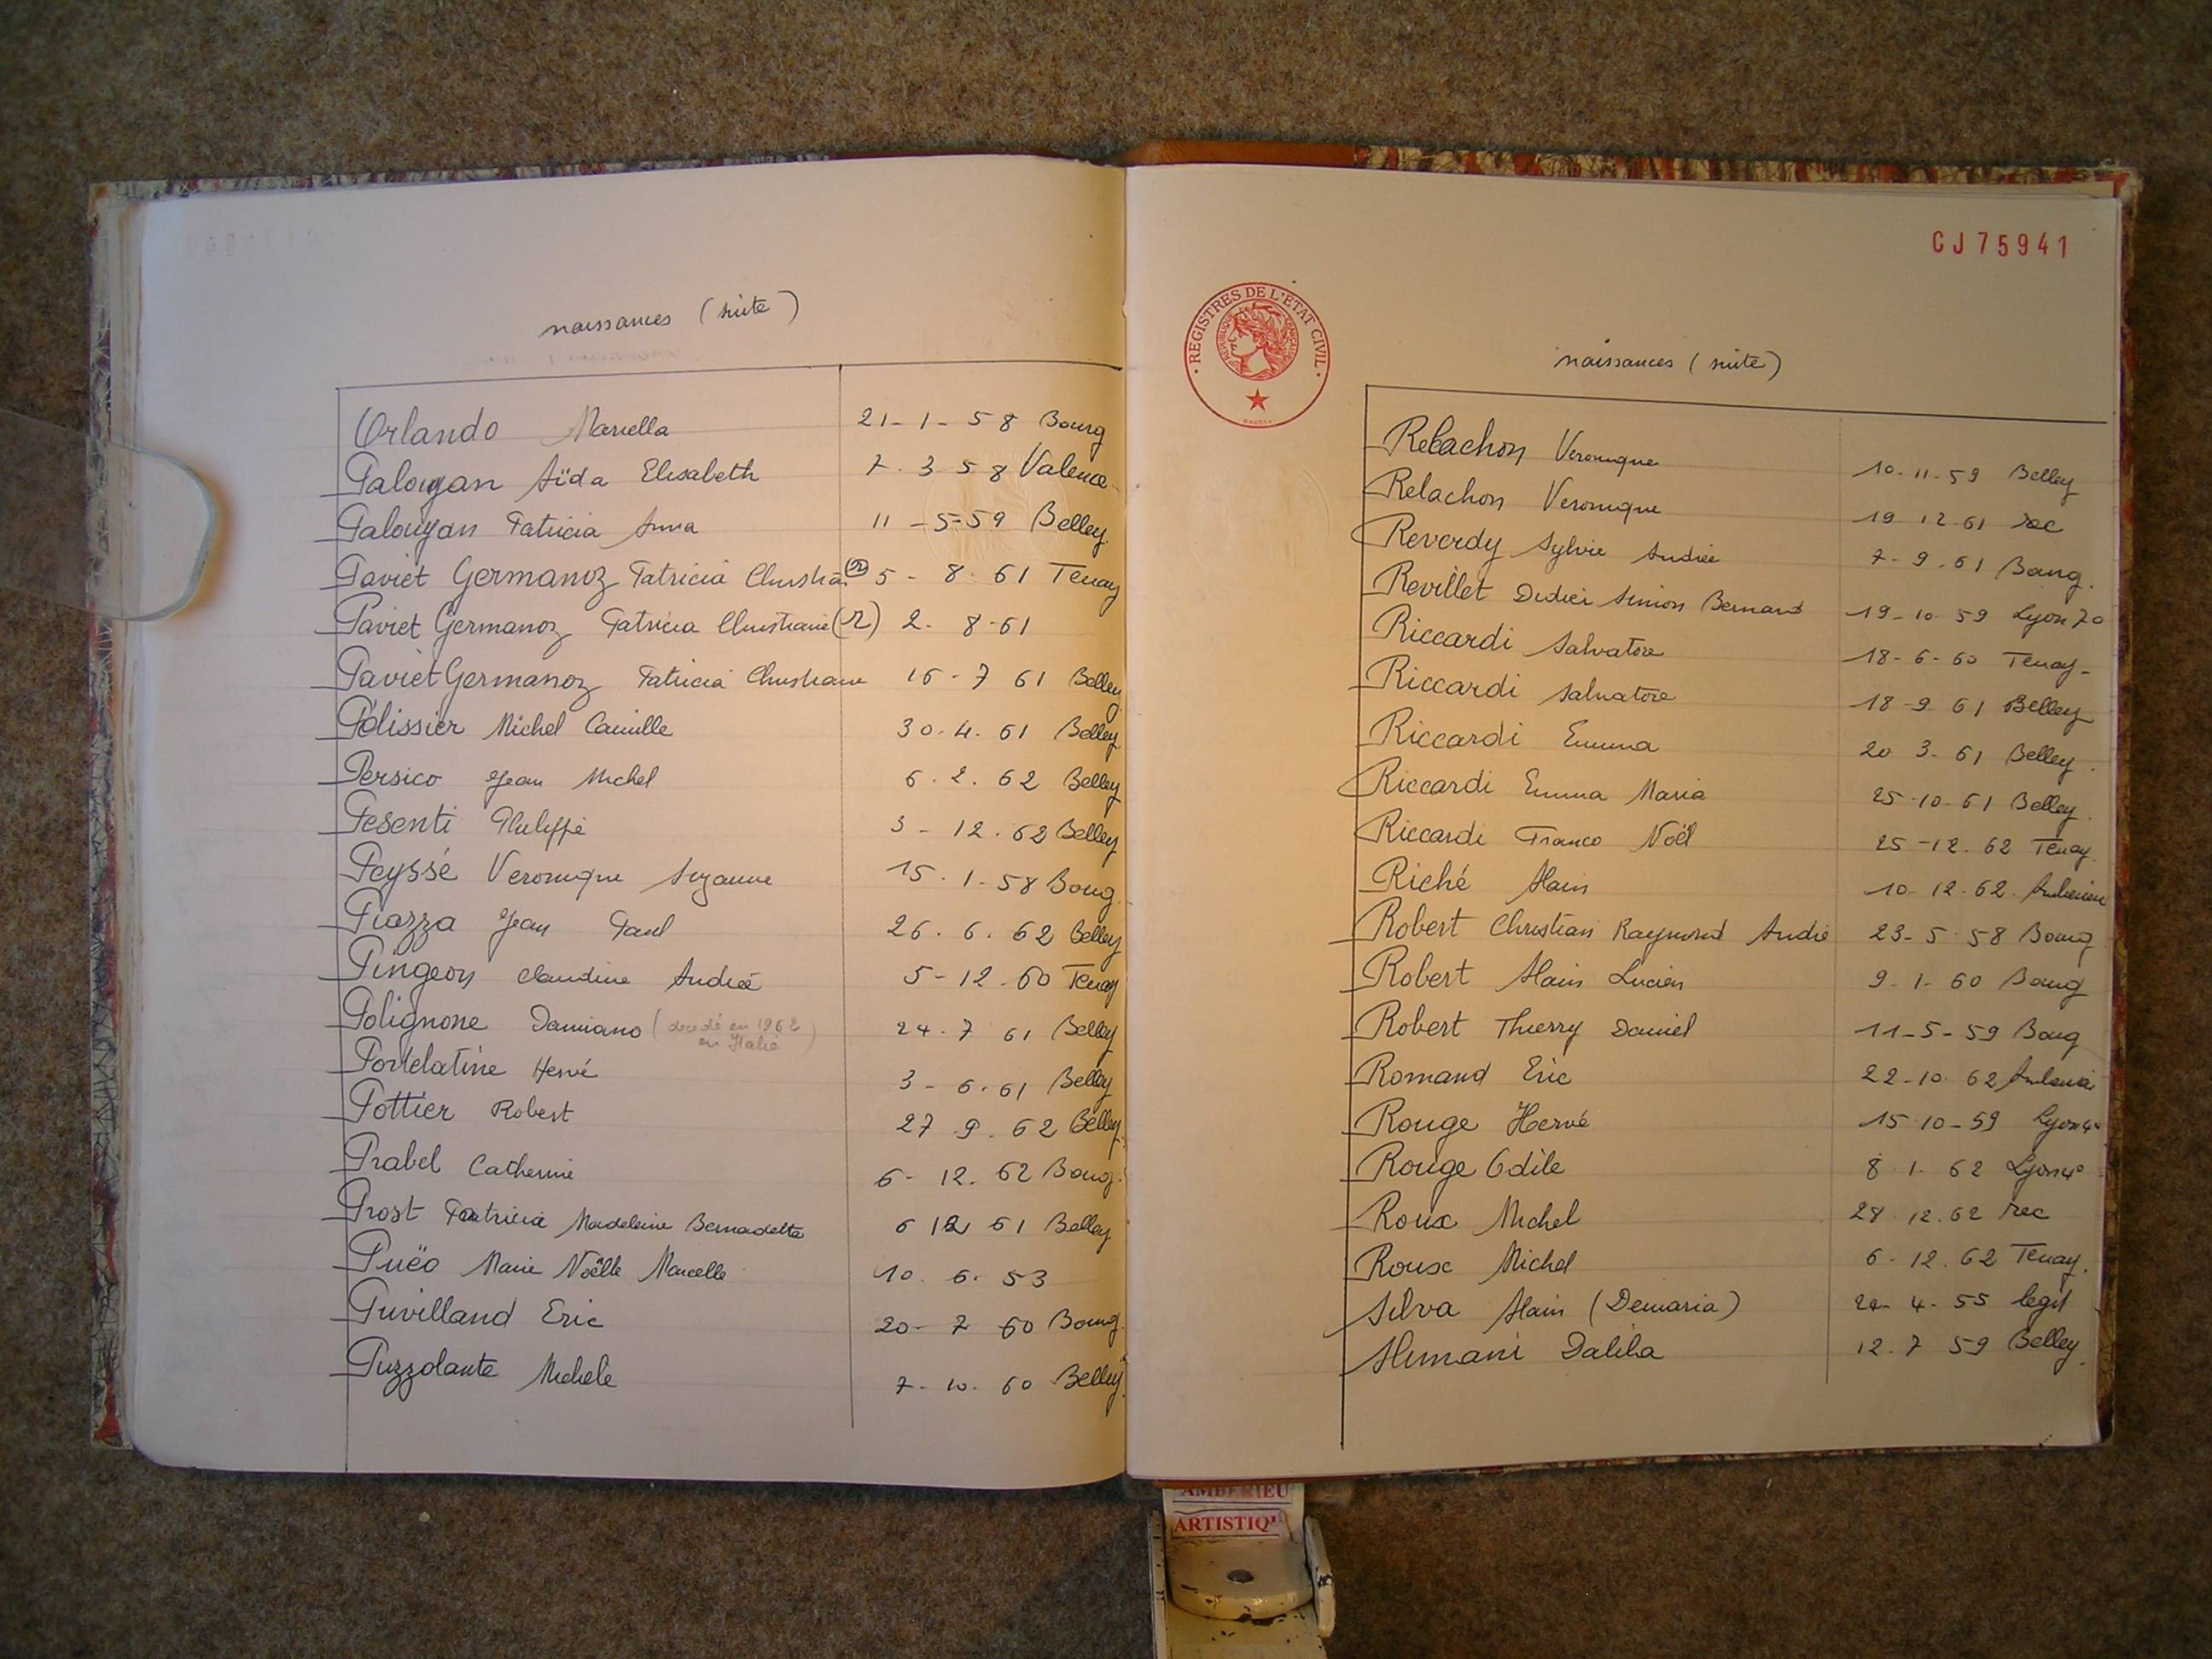 naissances (suite)
Orlando Mariella 21-1-58 Bourg
Palouyan Aïda Elisabeth 7.3 58 Valence
Palouyan Patricia Anna 11-5-59 Belley
Paviet Germanoz Patricia Christia (r) 5-8.61 Tenay
Paviet Germanoz Patricia Christiane (r) 2-8-61
Paviet Germanoz Patricia Christiane 16-7 61 Belley
Pélissier Michel Camille 30.4.61 Belley
Persico Jean Michel 6.2.62 Belley
Pesenti Philippe 3-12.62 Belley
Peyssé Veronique Suzanne 15.1-58 Bourg
Piazza Jean Paul 26.6.62 Belley
Pingeon Claudine Andrée 5-12.60 Tenay
Polignone Damiano (decedé en 1962 24.7 61 Belley
en Italie)
Portelatine Hervé 3-6.61 Belley
Pottier Robert 27 9.62 Belley
Prabel Catherine 6-12.62 Bourg
Prost Patricia Madeleine Bernadette 6 12 61 Belley
Puëo Marie Noëlle Marcelle 10.6.53
Puvilland Eric 20-7 60 Bourg
Puzzolante Michele 7-10.60 Belley
CJ75941
REGISTRES DE L'ETAT CIVIL
REPUBLIQUE FRANÇAISE
naissances (suite)
Relachon Veronique 10.11.59 Belley
Relachon Veronique 19 12.61 rec
Reverdy Sylvie Andrée 7-9.61 Bourg.
Revillet Didier Simon Bernard 19-10-59 Lyon 7°
Riccardi Salvatore 18-6-60 Tenay-
Riccardi Salvatore 18-9 61 Belley
Riccardi Emma 20 3-61 Belley.
Riccardi Emma Maria 25-10-61 Belley.
Riccardi Franco Noël 25-12.62 Tenay.
Riché Alain 10-12.62.
Robert Christian Raymond André 23-5 58 Bourg
Robert Alain Lucien 9-1-60 Bourg
Robert Thierry Daniel 11-5-59 Bourg
Romand Eric 22-10.62
Rouge Hervé 15 10-59 Lyon 4°
Rouge Odile 8 1-62 Lyon 4°
Roux Michel 28 12.62 rec
Roux Michel 6-12.62 Tenay.
Silva Alain (Demaria) 4-55 legit
Slimani Dalila 12.7 59 Belley.
AMBERIEU
ARTISTIQ